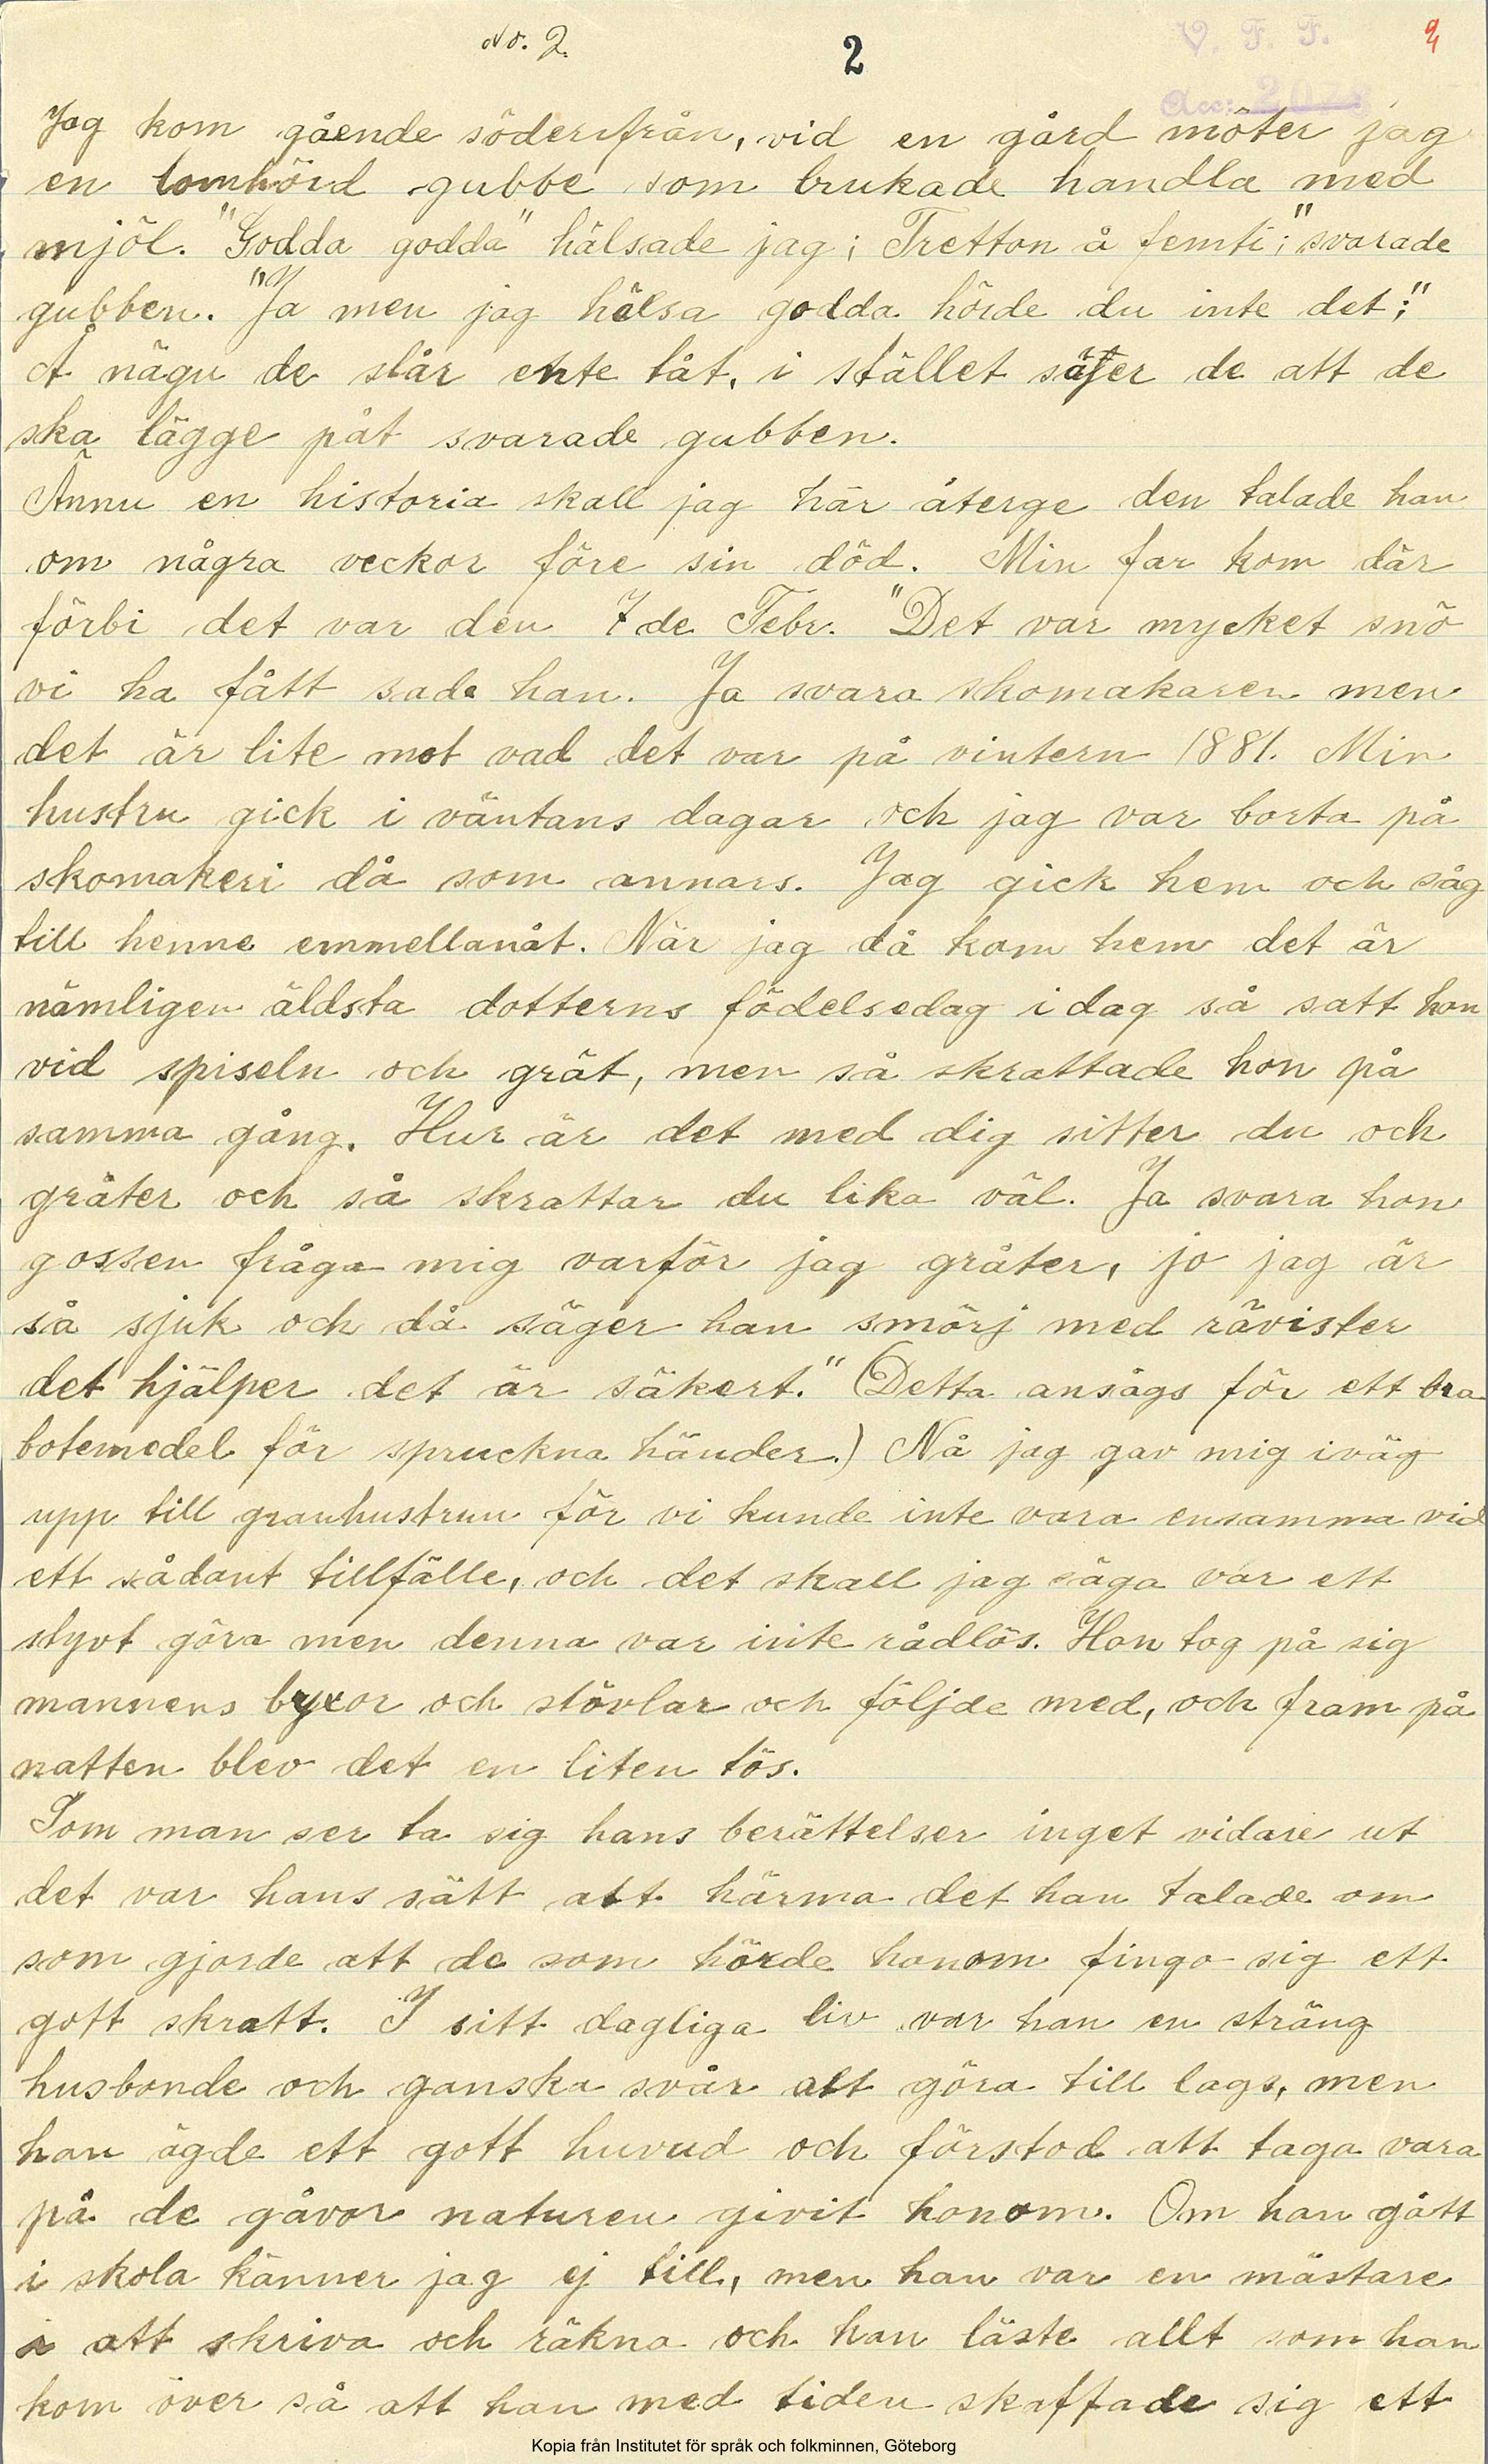 No. 2.
2
V. F. F.
Acc: 2078
Jag kom gående söderifrån, vid en gård möter jag
en lomhörd gubbe som brukade handla med
mjöl. "Godda godda" hälsade jag; Tretton å femti;" svarade
gubben. "Ja men jag hälsa godda hörde du inte det;"
Å nägu de slår ente låt, i stället säjer de att de
ska lägge påt svarade gubben.
Ännu en historia skall jag här återge den talade han
om några veckor före sin död. Min far kom där
förbi det var den 7de Febr. "Det var mycket snö
vi ha fått sade han. Ja svara skomakaren men
det är lite mot vad det var på vintern 1881. Min
hustru gick i väntans dagar och jag var borta på
skomakeri då som annars. Jag gick hem och såg
till henne emmellanåt. När jag då kom hem det är
nämligen äldsta dotterns födelsedag idag så satt hon
vid spiseln och grät, men så skrattade hon på
samma gång. Hur är det med dig sitter du och
gråter och så skrattar du lika väl. Ja svara hon
gossen fråga mig varför jag gråter, jo jag är
så sjuk och då säger han smörj med rävister
det hjälper det är säkert." (Detta ansågs för ett bra
botemedel för spruckna händer.) Nå jag gav mig iväg
upp till granhustrun för vi kunde inte vara ensamma vid
ett sådant tillfälle, och det skall jag säga var ett
styvt göra men denna var inte rådlös. Hon tog på sig
mannens byxor och stövlar och följde med, och fram på
natten blev det en liten tös.
Som man ser ta sig hans berättelser inget vidare ut
det var hans sätt att härma det han talade om
som gjorde att de som hörde honom fingo sig ett
gott skratt. I sitt dagliga liv var han en sträng
husbonde och ganska svår att göra till lags, men
han ägde ett gott huvud och förstod att taga vara
på de gåvor naturen givit honom. Om han gått
i skola känner jag ej till, men han var en mästare
i att skriva och räkna och han läste allt som han
kom över så att han med tiden skaffade sig ett
Kopia från Institutet för språk och folkminnen, Göteborg